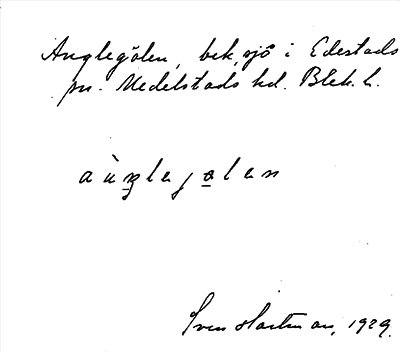 Anglegölen, bek, sjö i Edestads
sn. Medelstads hd. Blek. l.
Sven Hartman, 1929.